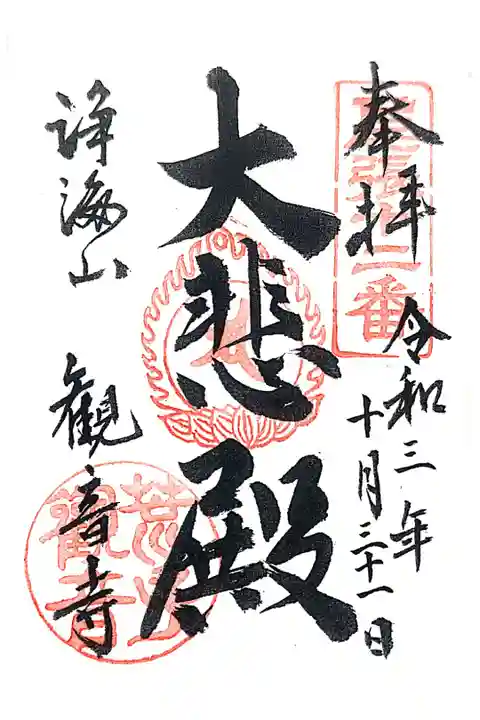 奉拝
令和三年
十月三十一日
大悲殿
浄海山
観音寺
二番